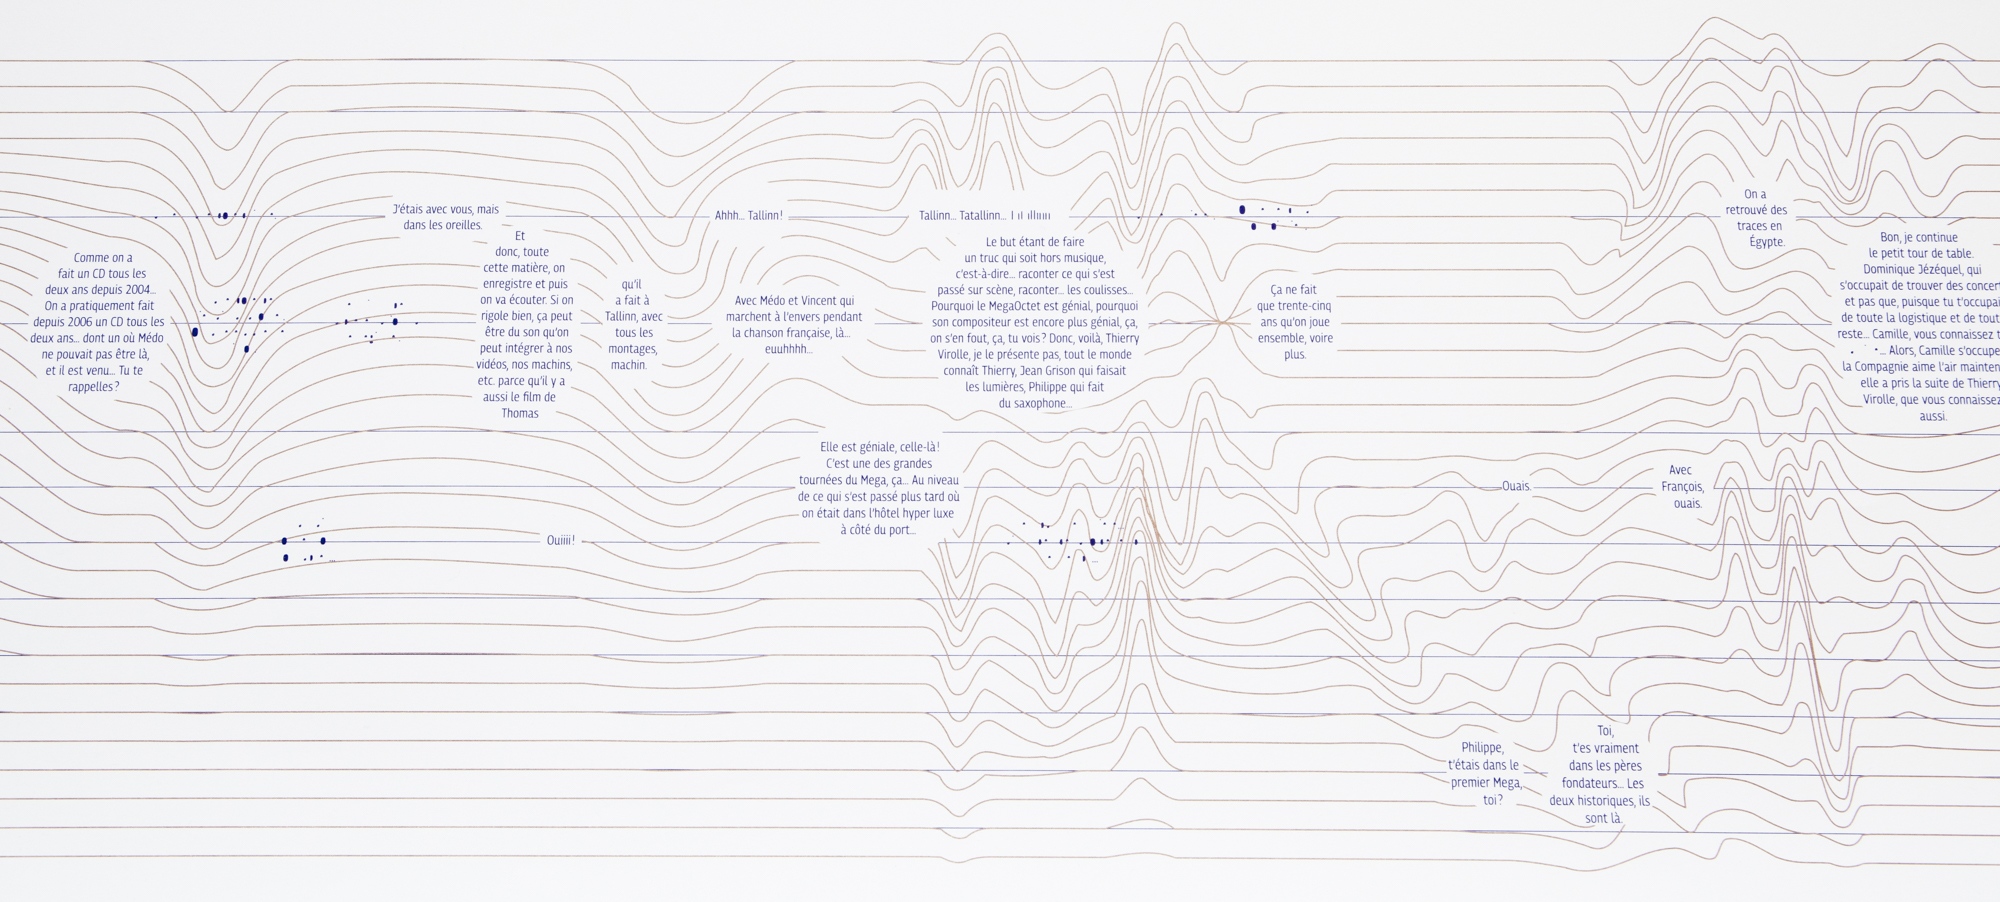 Comme on a
fait un CD tous les
deux ans depuis 2004...
On a pratiquement fait
depuis 2006 un CD tous les
deux ans... dont un où Médo
ne pouvait pas être là,
et il est venu... Tu te
rappelles ?
J'étais avec vous, mais
dans les oreilles.
Et
donc, toute
cette matière, on
enregistre et puis
on va écouter. Si on
rigole bien, ça peut
être du son qu'on
peut intégrer à nos
vidéos, nos machins,
etc. parce qu'il y a
aussi le film de
Thomas
Ouiiii !
qu'il
a fait à
Tallinn, avec
tous les
montages,
machin.
Ahhh... Tallinn !
Avec Médo et Vincent qui
marchent à l'envers pendant
la chanson française, là...
euuhhhh...
Elle est géniale, celle-là !
C'est une des grandes
tournées du Mega, ça... Au niveau
de ce qui s'est passé plus tard où
on était dans l'hôtel hyper luxe
à côté du port...
Tallinn... Tatallinn...
Le but étant de faire
un truc qui soit hors musique,
c'est-à-dire... raconter ce qui s'est
passé sur scène, raconter... les coulisses...
Pourquoi le MegaOctet est génial, pourquoi
son compositeur est encore plus génial, ça,
on s'en fout, ça, tu vois ? Donc, voilà, Thierry
Virolle, je le présente pas, tout le monde
connaît Thierry, Jean Grison qui faisait
les lumières, Philippe qui fait
du saxophone...
Ça ne fait
que trente-cinq
ans qu'on joue
ensemble, voire
plus.
Philippe,
t'étais dans le
premier Mega,
toi ?
Ouais.
Toi,
t'es vraiment
dans les pères
fondateurs... Les
deux historiques, ils
sont là.
Avec
François,
ouais.
On a
retrouvé des
traces en
Égypte.
Bon, je continue
le petit tour de table.
Dominique Jézéquel, qui
s'occupait de trouver des concert
et pas que, puisque tu t'occupai
de toute la logistique et de tout
reste... Camille, vous connaissez t
... Alors, Camille s'occupe
la Compagnie aime l'air mainten
elle a pris la suite de Thierry
Virolle, que vous connaissez
aussi.